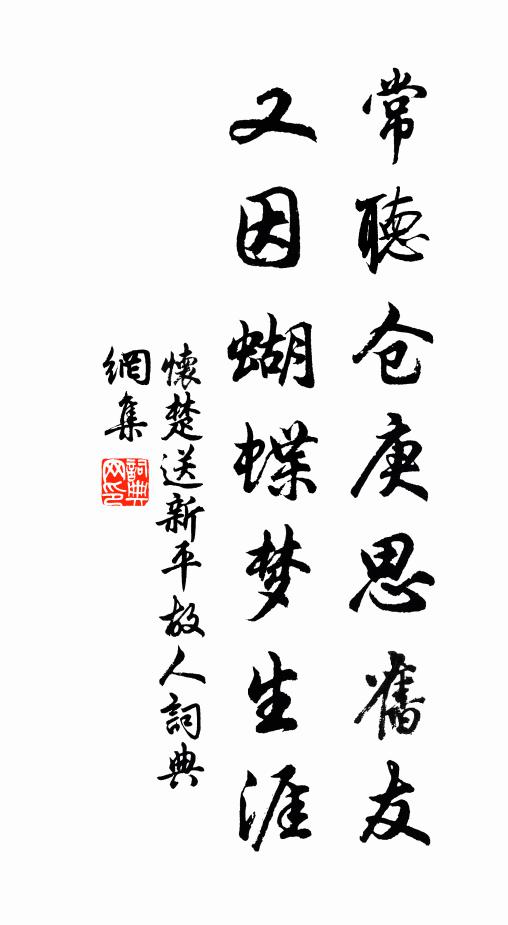 常聽仓庚思舊友
又因蝴蝶梦生涯
懷楚送新平故人詞典
網集
詞典網印